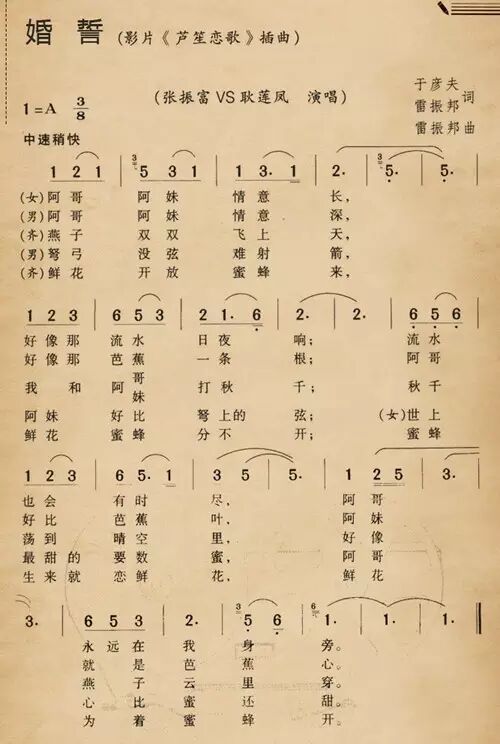 婚誓(影片《芦笙恋歌》插曲)
(张振富VS耿莲凤 演唱)
于彦夫
雷振邦 词
雷振邦 曲
1=A 3/8
中速稍快
1 2 1 | 5 3 1 | 1 3· 1 | 2· | 5· | 5· |
(女)阿哥 阿妹 情意 长,
(男)阿哥 阿妹 情意 深,
(齐)燕子 双双 飞上 天,
(男)弩弓 没弦 难射 箭,
(齐)鲜花 开放 蜜蜂 来,
1 2 3 | 6 5 3 | 2 1· 6 | 2· | 2· | 6 5 6 |
好像那 流水 日夜 响; 流水
好像那 芭蕉 一条 根; 阿哥
我和 阿哥阿妹 打秋 千; 秋千
阿妹 好比 弩上的 弦; (女)世上
鲜花 蜜蜂 分不 开; 蜜蜂
1 2 3 | 6 5· 1 | 3 5· | 5· | 1 2 5 | 3· |
也会 有时 尽, 阿哥
好比 芭蕉 叶, 阿妹
荡到 晴空 里, 好像
最甜的 要数 蜜, 阿哥
生来就 恋鲜 花, 鲜花
3· | 6 5 3 | 2· | 5 6· | 1· | 1· | 1· |
永远在 我 身 旁。
就是 芭 蕉 心。
燕子 云 里 穿。
心比 蜜 还 甜。
为着 蜜 蜂 开。